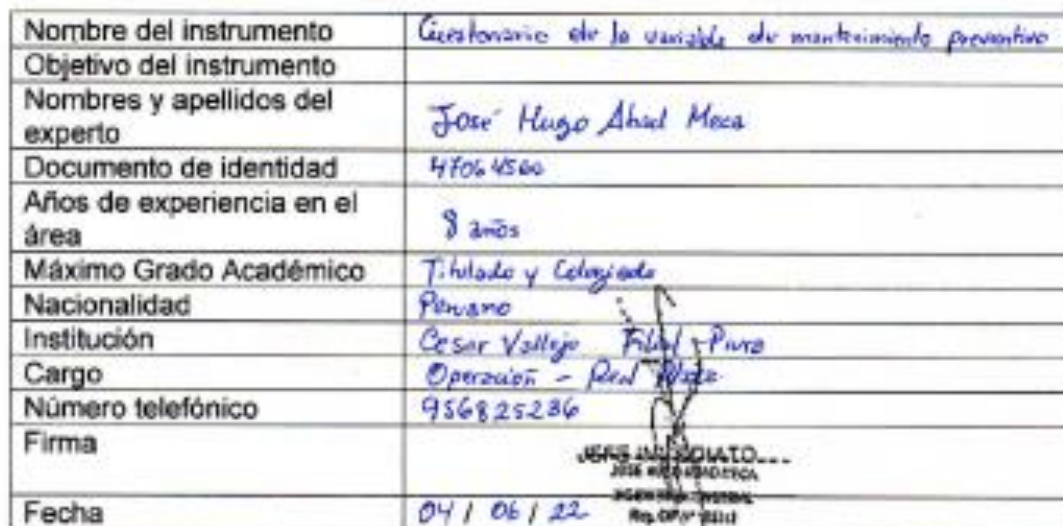 Nombre del instrumento Cuestionario de la variable de mantenimiento preventivo
Objetivo del instrumento
Nombres y apellidos del
experto José Hugo Abad Meca
Documento de identidad 47064560
Años de experiencia en el
área 8 años
Máximo Grado Académico Titulado y Colegiado
Nacionalidad Peruano
Institución Cesar Vallejo Filial - Piura
Cargo Operación -
Número telefónico 956825236
Firma
JEFE INMEDIATO
JOSE HUGO ABAD MECA
Fecha 04 / 06 / 22 Reg. CIP N°